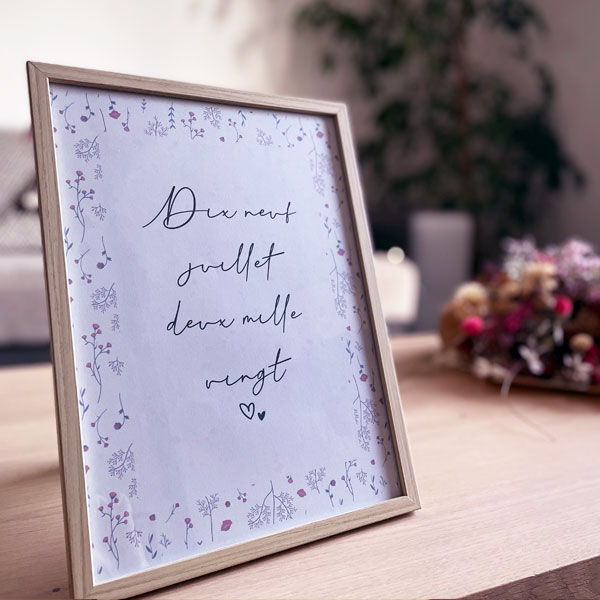 Dix neuf
juillet
deux mille
vingt